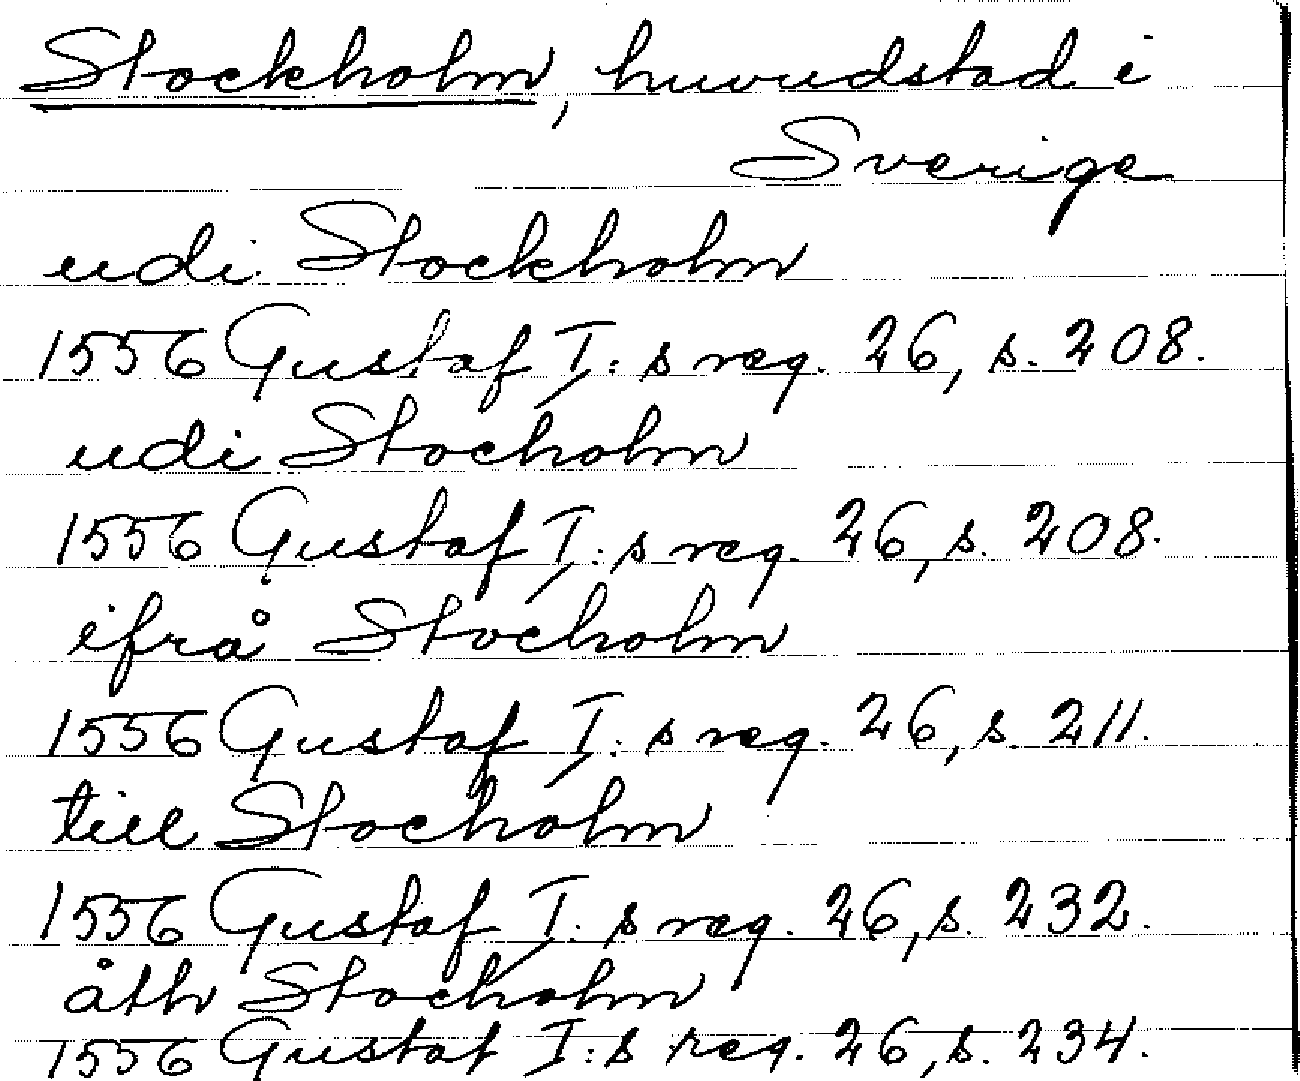 Stockholm, huvudstad i
Sverige
udi Stockholm
1556 Gustaf I: s reg. 26, s. 208.
udi Stocholm
1556 Gustaf I: s reg. 26, s. 208.
ifrå Stocholm
1556 Gustaf I: s reg. 26, s. 211.
till Stocholm
1556 Gustaf I: s reg. 26, s. 232.
åth Stocholm
1556 Gustaf I: s reg. 26, s. 234.